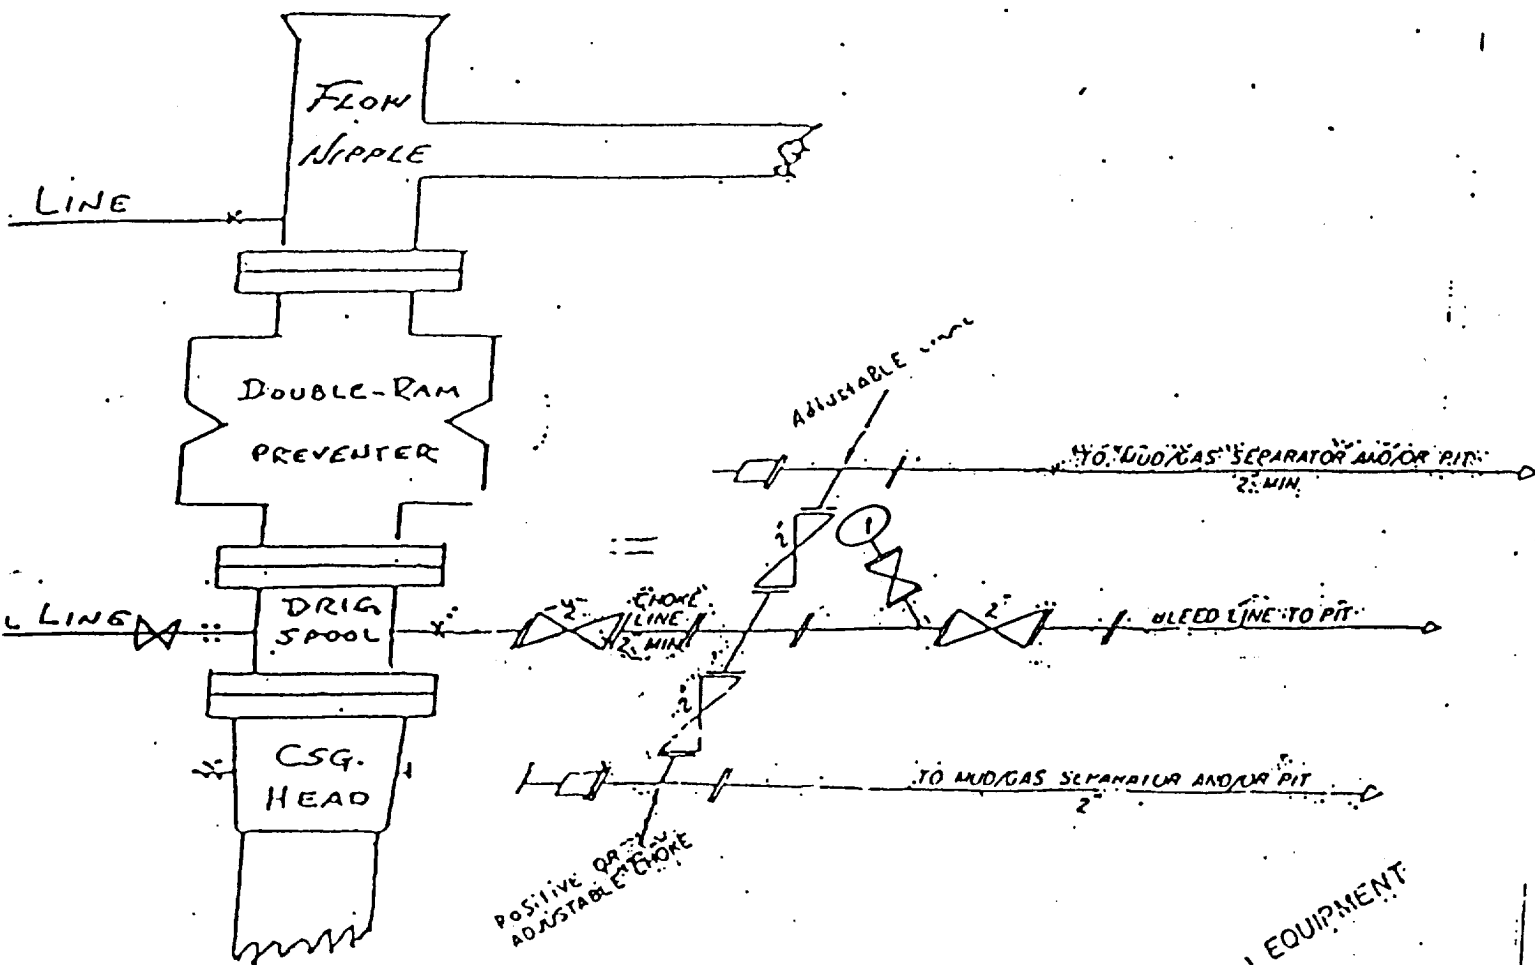 FLOW
NIPPLE
LINE
DOUBLE-RAM
PREVENTER
ADJUSTABLE
TO MUD/GAS SEPARATOR AND/OR PIT
2" MIN
1
2"
LINE
DRLG
SPOOL
2"
CHOKE
LINE
2" MIN
2"
BLEED LINE TO PIT
2"
CSG.
HEAD
TO MUD/GAS SEPARATOR AND/OR PIT
2"
POSITIVE OR
ADJUSTABLE CHOKE
EQUIPMENT